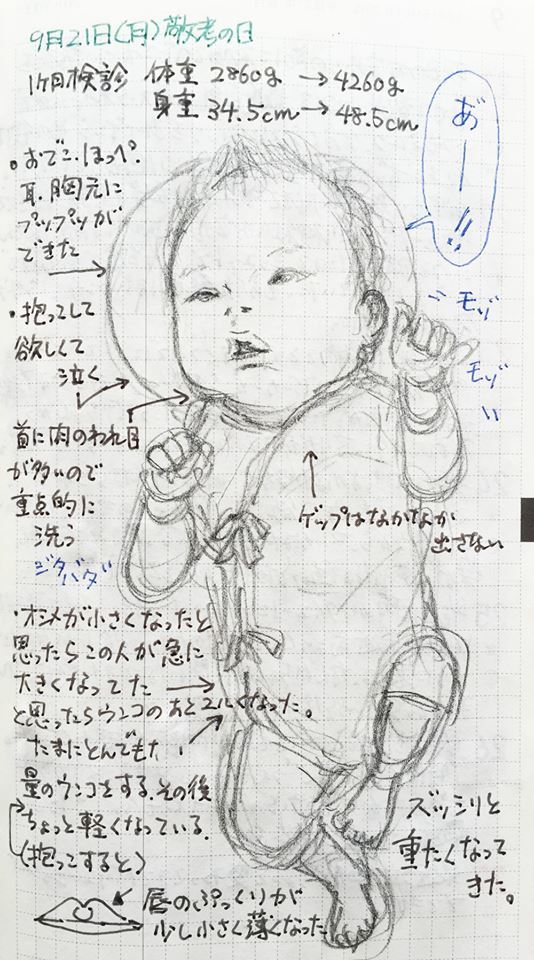 9月21日(月)敬老の日
1ヶ月検診 体重 2860g → 4260g
身重 34.5cm → 48.5cm
あ゛ー!!
・おでこ、ほっぺ、
耳、胸元に
プップツが
できた
モゾ
モゾ
い
・抱っこして
欲しくて
泣く
首に肉のわれ目
が多いので
重点的に
洗う
ジタバタ
ゲップはなかなか
出さない
・オシメが小さくなったと
思ったらこの人が急に
大きくなってた
と思ったらウンコのあとユルくなった。
たまにとんでもない
量のウンコをする。その後
ちょっと軽くなっている。
(抱っこすると)
ズッシリと
重たくなって
きた。
唇のぷっくりが
少し小さく薄くなった